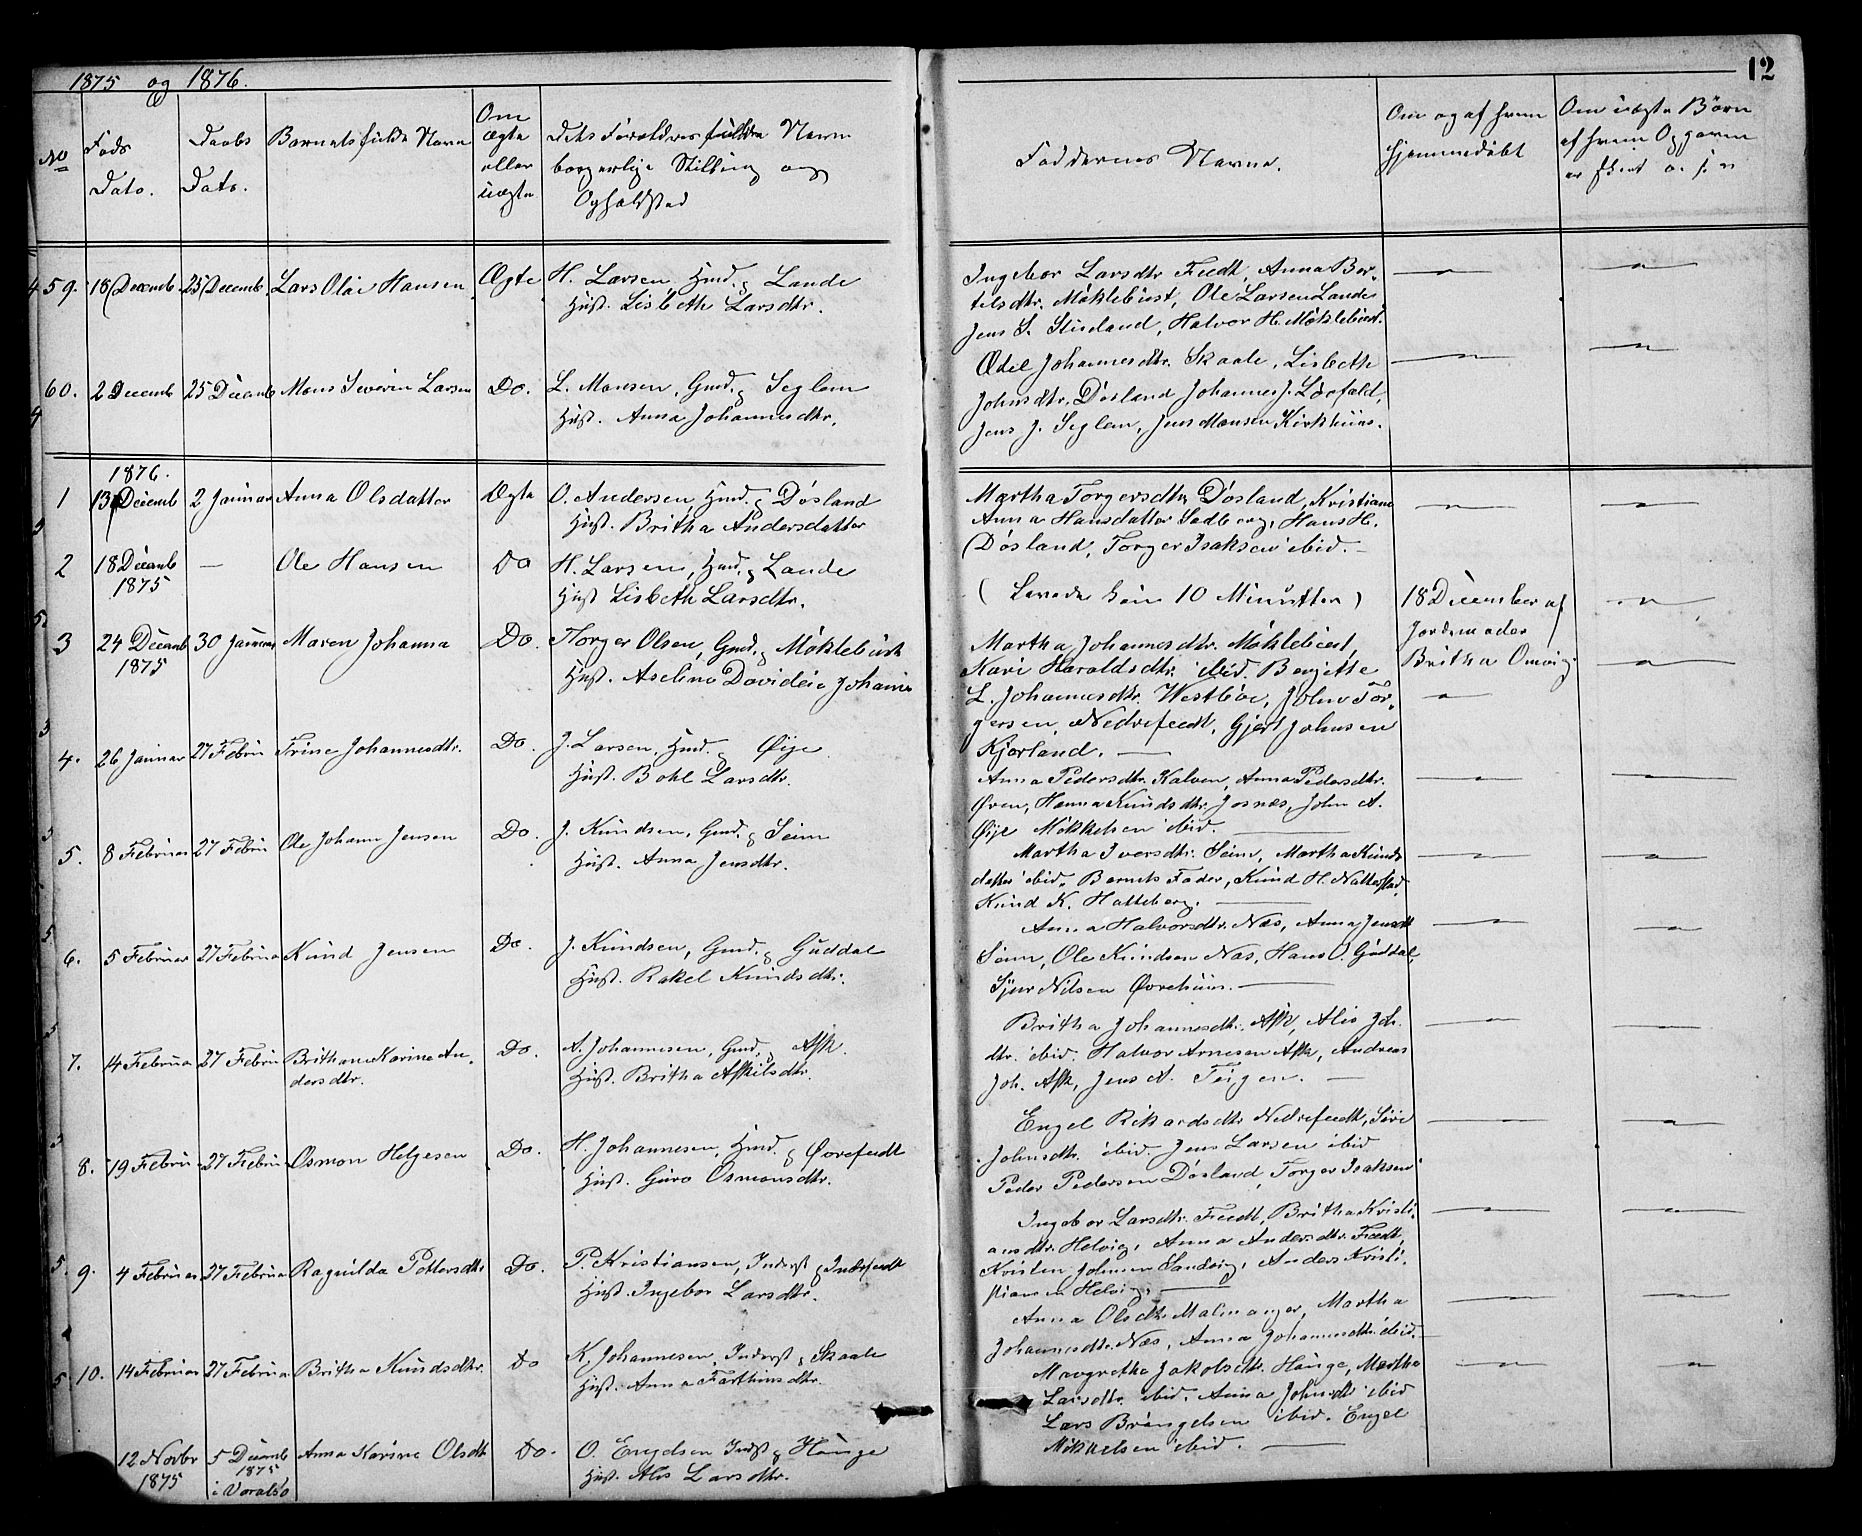 1875 og 1876.
12
No
Føds Dato.
Daabs Dato.
Barnets fulde Navn
Om ægte eller uægte
Dets Forældres fulde Navn
borgerlige Stilling og
Opholdsted
Faddernes Navne.
Om og af hvem
hjemmedøbt
Om uægte Børn
af hvem Opgaven
er skeet
59. 18 Decemb 25 Decemb. Lars Olai Hansen Ægte H. Larsen, Hmd. & Lande
Hust. Lisbeth Larsdtr.
Ingebor Larsdtr. Feedt, Anna Ber-
telsdtr. Møklebust, Ole Larsen Lande
Jens S. Stueland, Halvor H. Møklebust.
60. 2 Decemb 25 Decemb Mons Severin Larsen Do. L. Monsen, Gmd. & Seglem
Hust. Anna Johannesdtr.
Ædel Johannesdtr. Skaale, Lisbeth
Johnsdtr. Døsland Johannes J. Løvfald,
Jens J. Seglem, Jens Monsen Kirkhuus.
1876.
1 13 Decemb 2 Januar Anna Olsdatter Ægte O. Andersen, Hmd. & Døsland
Hust. Britha Andersdatter
Martha Torgersdtr. Døsland, Kristiane
Anna Hansdatter Sedberg, Hans H.
Døsland, Torger Isaksen ibid. –
2 18 Decemb — Ole Hansen Do H. Larsen, Hmd. & Lande
1875 Hust Lisbeth Larsdtr.
( Levede kun 10 Minutter )
18 December af
Jordemoder
Britha Omvig.
3 24 Decemb 30 Januar Maren Johanna Do. Torger Olsen, Gmd. & Møklebust
1875 Hust. Aseline Davideia Johannes
Martha Johannesdtr. Møklebust,
Kari Haraldsdtr. ibid. Bergitte
L. Johannesdtr. Westbøe, John Tor-
gersen, Nedrefeedt, Gjert Johnsen
Kjerland. —
4. 26 Januar 27 Februa Trine Johannesdtr. Do. J. Larsen, Hmd. & Øije
Hust. Bohl Larsdtr.
Anna Pedersdtr. Kalven, Anna Pedersdtr.
Øren, Hanna Knudsdtr. Josnæs, John A.
Øije Møkkelsen ibid. —
5. 8 Februar 27 Februa Ole Johann Jensen Do. J. Knudsen, Gmd. & Seim
Hust. Anna Jensdtr.
Martha Iversdtr. Seim, Martha Knuds
datter ibid. Barnets Fader, Knud H. Natterstad,
Knud K. Hatteberg. —
6. 5 Februar 27 Februa Knud Jensen Do. J. Knudsen, Gmd. & Guddal
Hust. Rakel Knudsdtr.
Anna Halvorsdtr. Næs, Anna Jensdtr
Seim, Ole Knudsen Næs, Hans O. Guddal,
Sjur Nilsen Øvrehuus. —
7. 14 Februa 27 Februa Brithane Karine An-
dersdtr.
Do. A. Johannesen, Gmd. & Ask.
Hust. Britha Askilsdtr.
Britha Johannesdtr. Ask, Alis Joh.
dtr. ibid. Halvor Arnesen Ask, Andreas
Joh. Ask, Jens A. Teigen. —
8. 19 Februa 27 Februa Osmon Helgesen Do. H. Johannesen, Hmd. & Øvrefeedt
Hust. Guro Osmonsdtr.
Engel Rikardsdtr. Nedrefeedt, Siri
Johnsdtr. ibid. Jens Larsen ibid
Peder Pedersen Døsland, Torger Isaksen
9. 4 Februar 27 Februa Ragnilda Pettersdtr Do. P. Kristiansen, Inderst &
Hust. Ingebor Larsdtr.
Ingebor Larsdtr. Feedt, Britha Kristi-
ansdtr. Helvig, Anna Andersdtr. Feedt,
Kristen Johnsen Sandvig, Anders Kristi-
ansen Helvig. —
10. 14 Februar 27 Februa Britha Knudsdtr. Do K. Johannesen, Inderst & Skaale
Hust. Anna Farthinsdtr.
Anna Olsdtr. Malmanger, Martha
Johannesdtr. Næs, Anna Johannesdtr. ibid. —
12 Novbr 5 Decemb Anna Karine Olsdtr Do. O. Engelsen Indst & Hauge
1875 1875 Hust. Alis Larsdtr.
i Varalsø
Margrethe Jakobsdtr. Hauge, Martha
Larsdtr. ibid. Anna Johnsdtr ibid
Lars Brängelsen ibid. Engel
Mikkelsen ibid. —